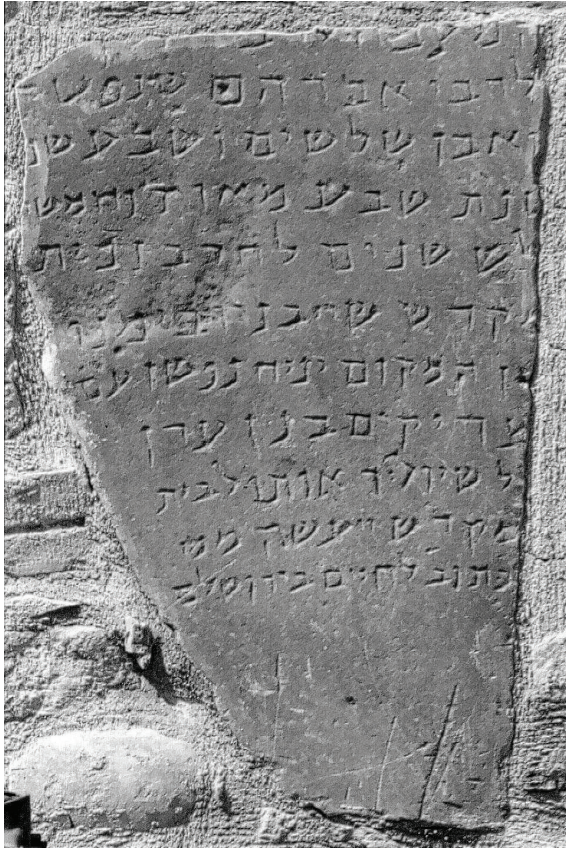 אברהם שנפט
ואבן שלשים ושבע שנ
נת שבע מאות וחמש
לש שנים לחרבן בית
מקדש שיבנה בימנו
המקום יניח נפשו עם
צדיקים בגן עדן
ל שיוליך אותו לבית
מקדש
כתוב לחיים בירושלם